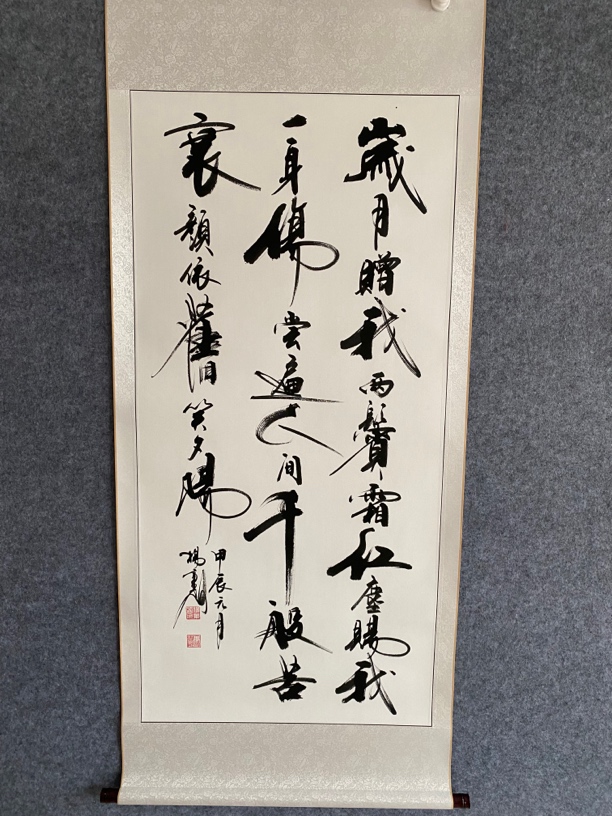 歲月贈我兩鬢霜紅塵賜我
一身傷嘗遍人間千般苦
衰顏依舊笑夕陽
甲辰元月
楊